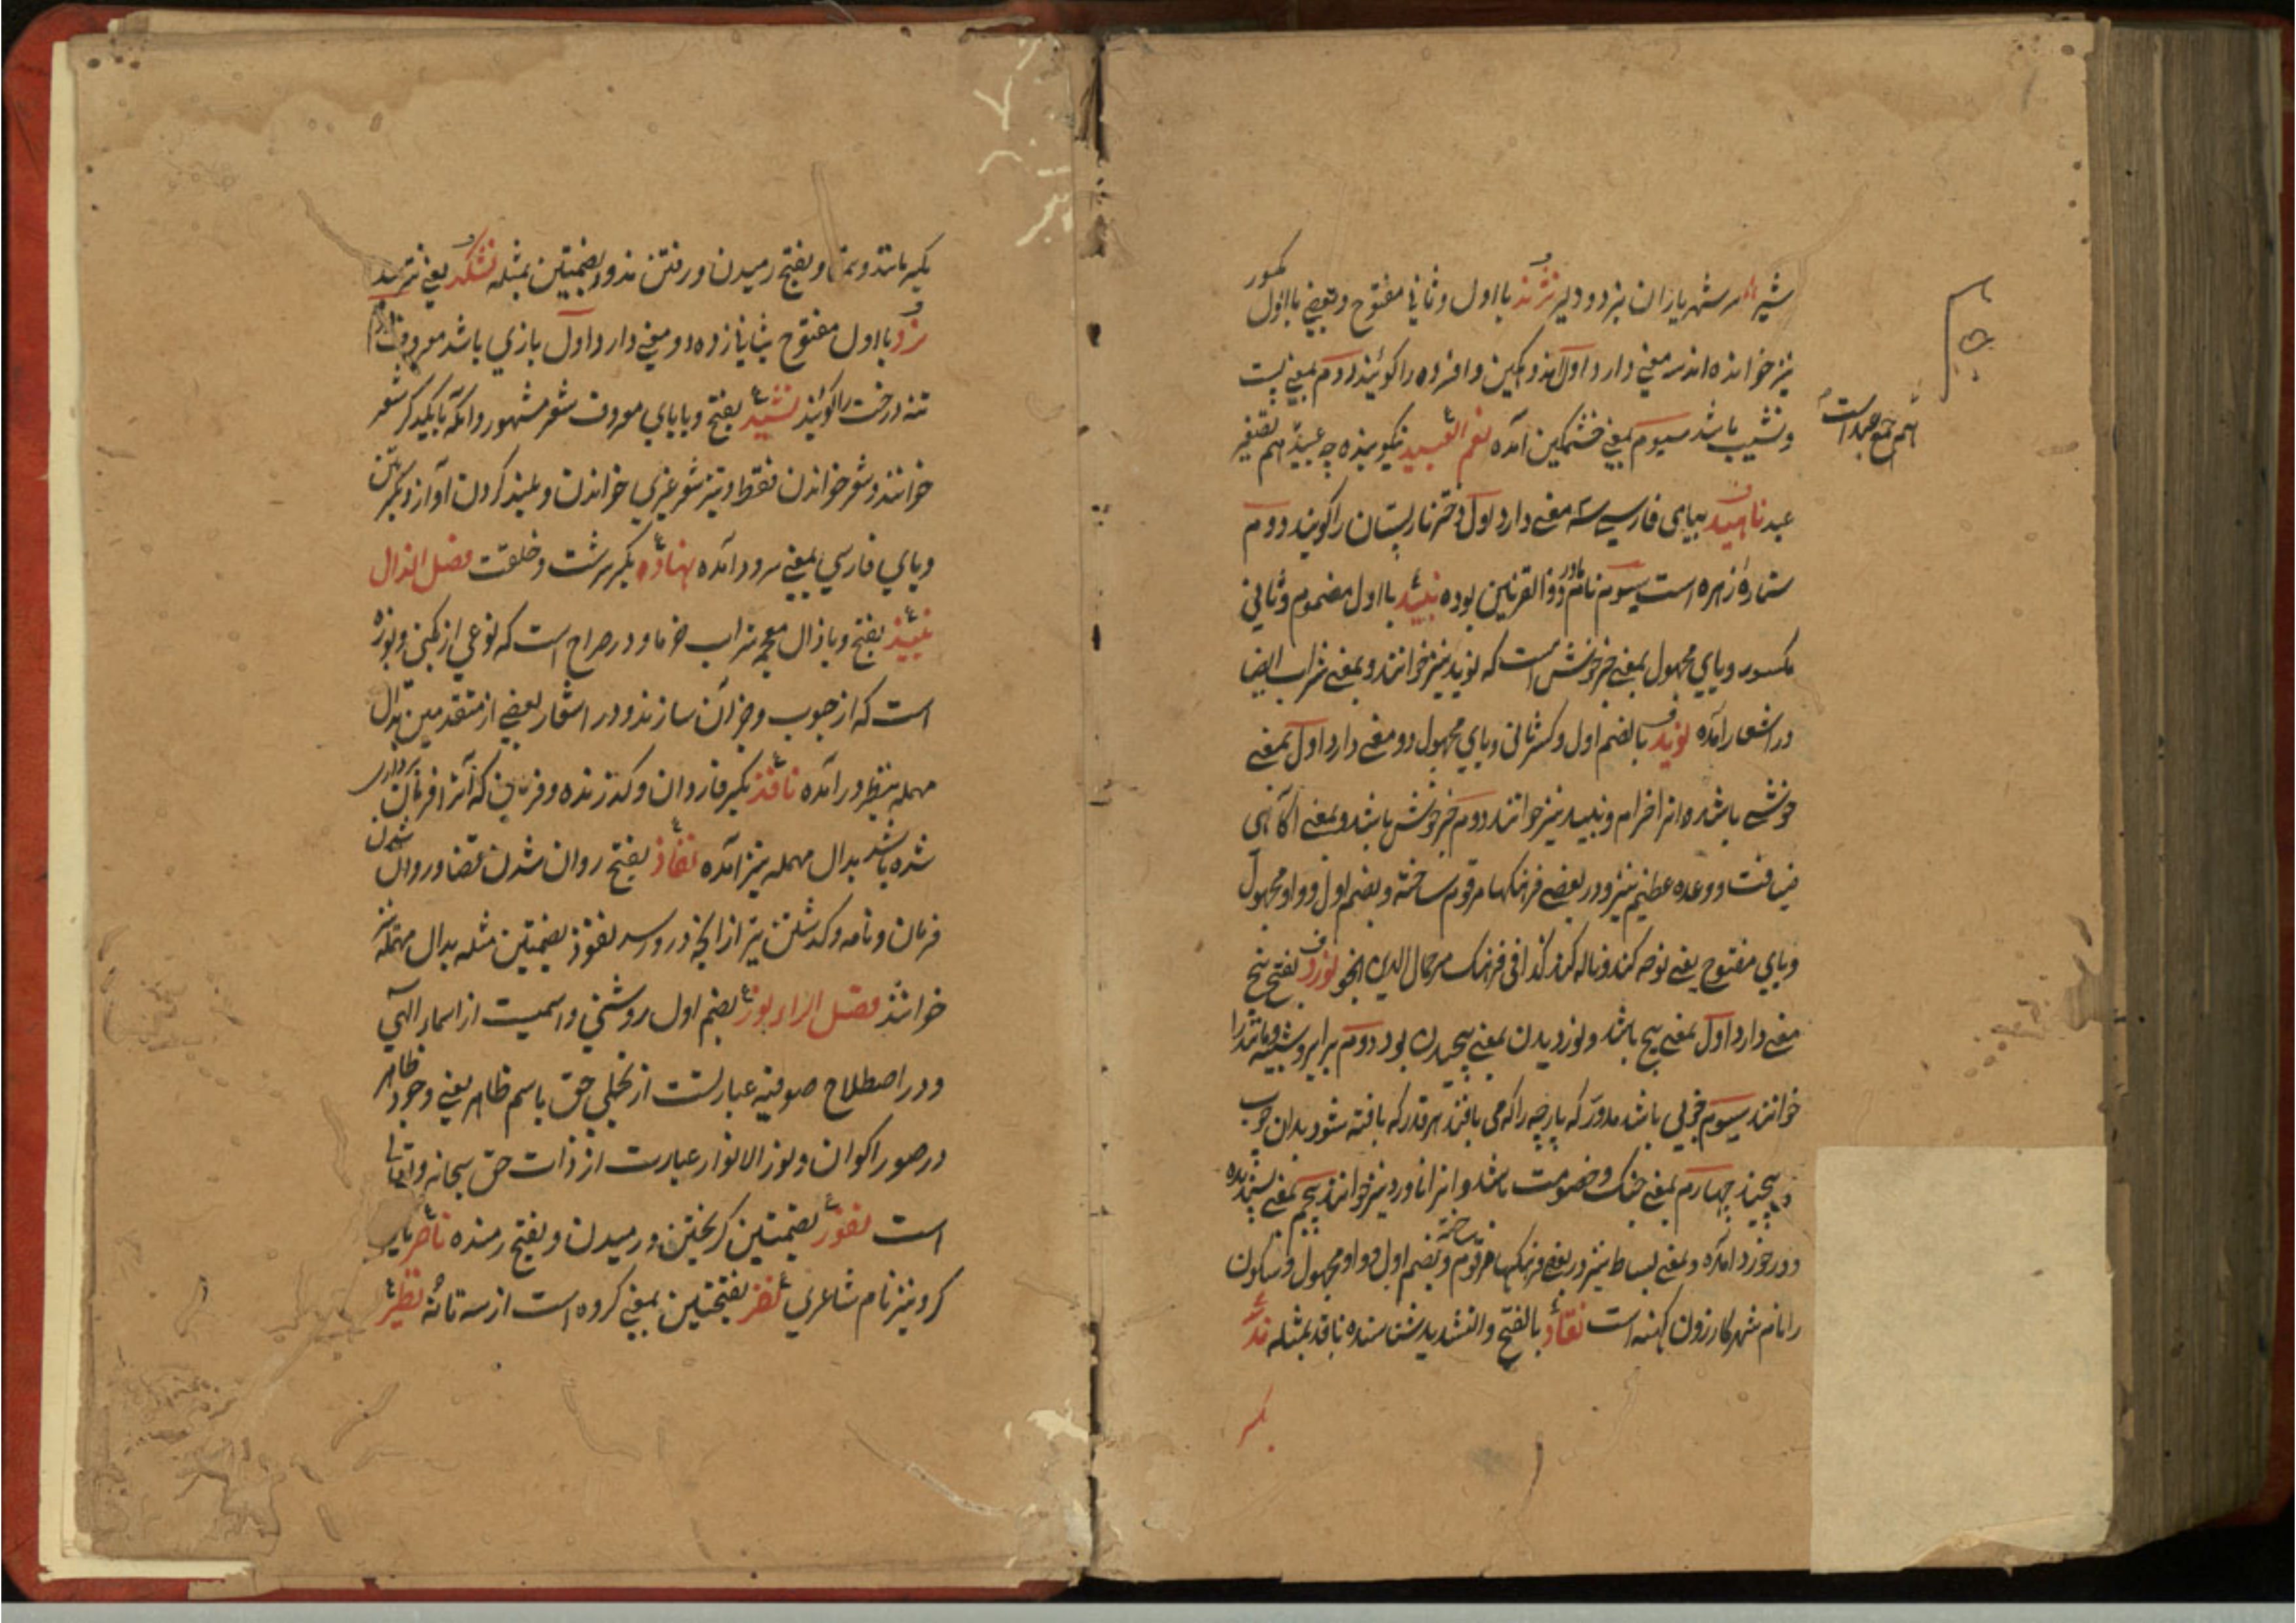 شیر سر شهریاران بزد و دلیر نژند بااول و ثانی مفتوح و بعضی بااول مکسور
نیز خوانده اند سه معنی دارد اول اندوهکین و افسرده را کویند دوم بمعنی پست
و نشیب باشد سیوم بمعنی خشمکین آمده نعم العبید نیکو بنده چه عبید هم تصغیر
عبد ناهید بیای فارسی سه معنی دارد اول دختر نارپستان را کویند دوم
ستاره زهره است سیوم نام مادر ذوالقرنین بوده نبید بااول مضموم و ثانی
مکسور و یای مجهول بمعنی خبر خوش است که نوید نیز خوانند و بمعنی شراب ایضا
در اشعار آمده نوید بالضم اول و کسر ثانی و یای مجهول دو معنی دارد اول بمعنی
خوشی باشد و انرا خرام و نبید نیز خوانند دوم خبر خوش باشد و بمعنی آکاهی
ضیافت و وعده عطیم نیز و در بعضی فرهنکها مرقوم ساخته و بضم اول و واو مجهول
و یای مفتوح یعنی نوحه کند و ناله کند کذا فی فرهنک میر جمال الدین انجو نورد بفتح پنج
معنی دارد اول بمعنی پیچ باشد و نوردیدن بمعنی پیچیدن بود دوم برابر و شبیه و مانند را
خوانند سیوم چوبی باشد مدور که پارچه را که می بافند هر قدر که بافته شود بدان چوب
پیچند چهارم بمعنی جنک و خصومت باشد و انرا ناورد نیز خوانند پنجم بمعنی پسندیده
و در خورد آمده و بمعنی بساط نیز در بعضی فرهنکها مرقوم ساخته و بضم اول و واو مجهول و سکون
را نام شهر کازرون کهنه است نقاد بالفتح و التشدید شناسنده ناقد بمثله ند
نعم جمع عبد است
یکیر مانند و همتا و بفتح رمیدن و رفتن ند و بضمتین بمثله نشکرد یعنی نترسد
نرد بااول مفتوح بثانی زده دو معنی دارد اول بازی باشد معروف
تنه درخت را کویند نشید بفتح و بایای معروف شعر مشهور و انکه بایکدیکر شعر
خوانند و شعر خواندن فقط و نیز شعر عربی خواندن و بلند کردن آواز
و یای فارسی بمعنی سرود آمده نهاد بکسر سرشت و خلقت فصل الذال
نبیذ بفتح و با ذال معجمه شراب خرما و در صراح است که نوعی از بکنی و بوزه
است که از حبوب و جز آن سازند و در اشعار بعضی از متقدمین بدال
مهمله بنظر در آمده نافذ بکسر فا روان و کذرنده و فرمانی که آنرا فرمان برداری
شده باشد بدال مهمله نیز آمده نفاذ بفتح روان شدن قضا و روان شدن
فرمان و نامه و کذشتن تیر از آنچه درو رسد نفوذ بضمتین مثله بدال مهمله نیز
خوانند فصل الراء نور بضم اول روشنی و اسمیست از اسماء الهی
و در اصطلاح صوفیه عبارتست از تجلی حق باسم ظاهر یعنی وجود ظاهر
در صور اکوان و نور الانوار عبارت از ذات حق سبحانه و تعالی
است نفور بضمتین کریختن و رمیدن و بفتح رمنده ناصر یاری
کر و نیز نام شاعری نفر بفتحتین بمعنی کروه است از سه تا نه نظیر